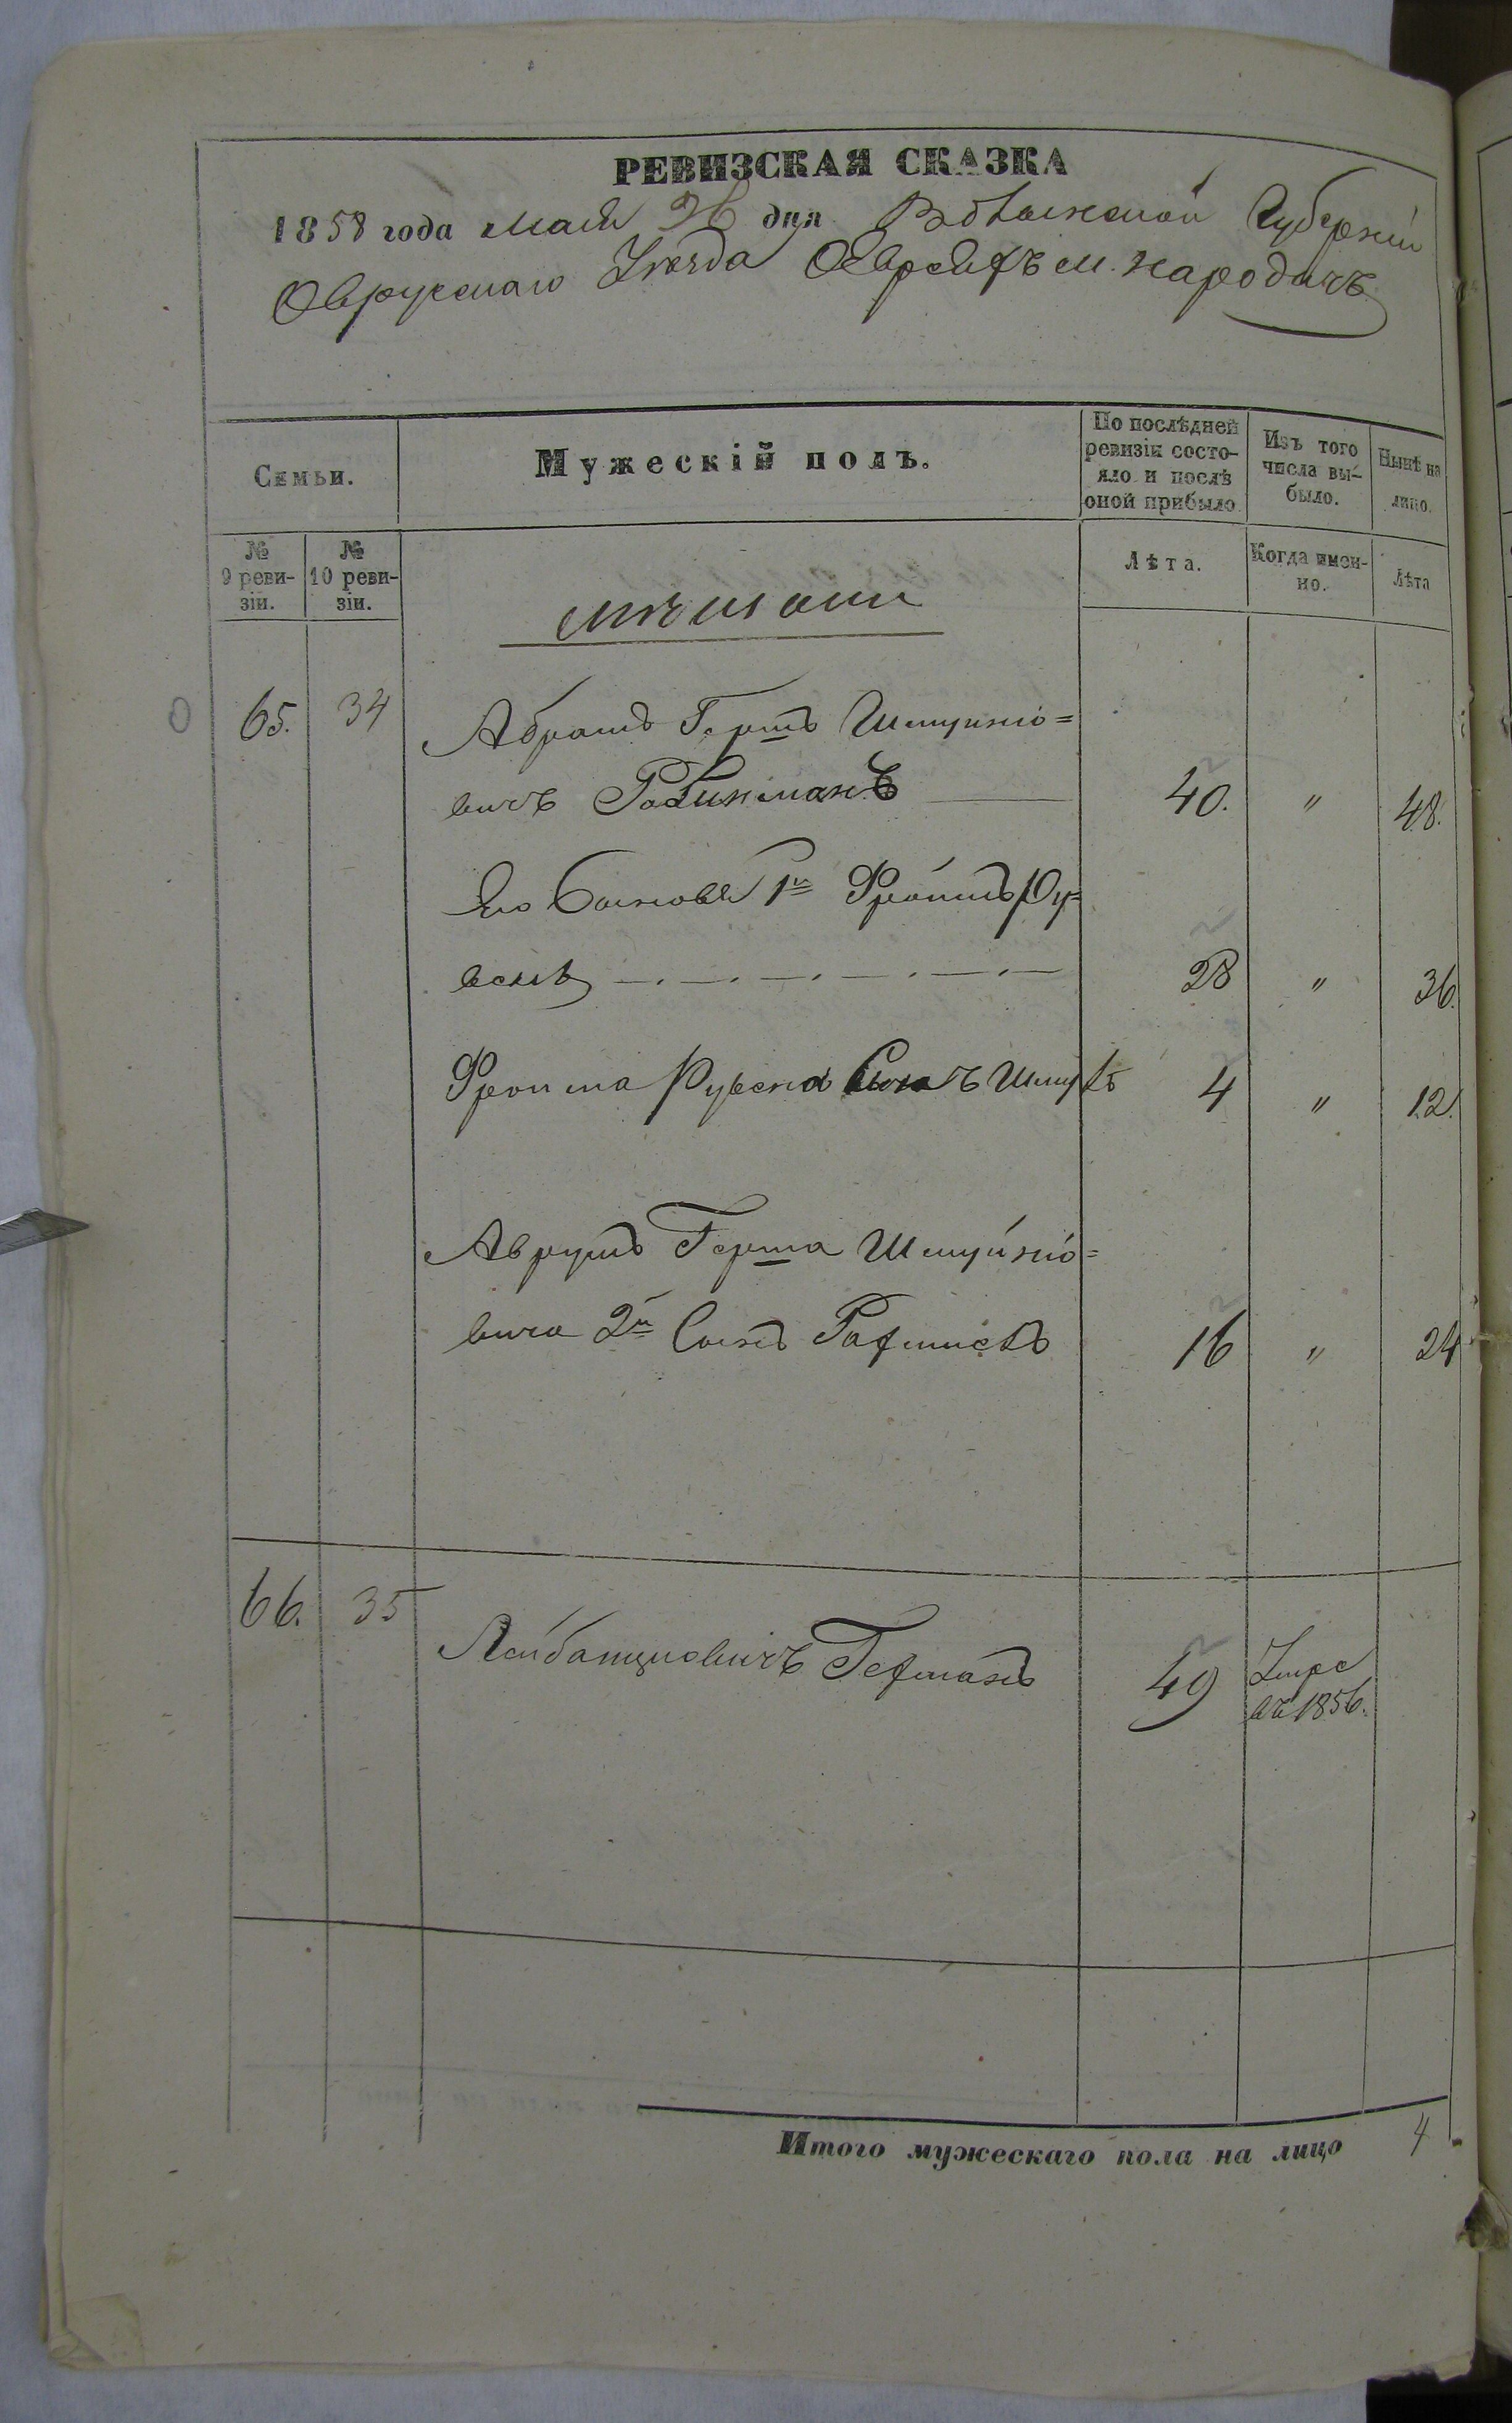 РЕВИЗСКАЯ СКАЗКА
1858 года Мая 26 дня Волынской Губерніи
Овручскаго Уѣзда Евреевъ м. Народичъ
Семьи.
Мужескій полъ.
По послѣдней
ревизіи состо-
яло и послѣ
оной прибыло
Изъ того
числа вы-
было.
Нынѣ на
лицо.
№
9 реви-
зіи.
№
10 реви-
зіи.
Лѣта.
Когда имен-
но.
Лѣта
мѣщане
65. 34 Абрамъ Гершъ Шмуйло=
вичъ 40. " 48.
Его Сыновья 1й Фроимъ Ру=
венъ 28 " 36.
Фроима Рувена Сынъ Шмуль 4 " 12.
Аврумъ Герша Шмуйло=
вича 2й Сынъ 16 " 24
66. 35
49 Умре
въ 1856.
Итого мужескаго пола на лицо 4